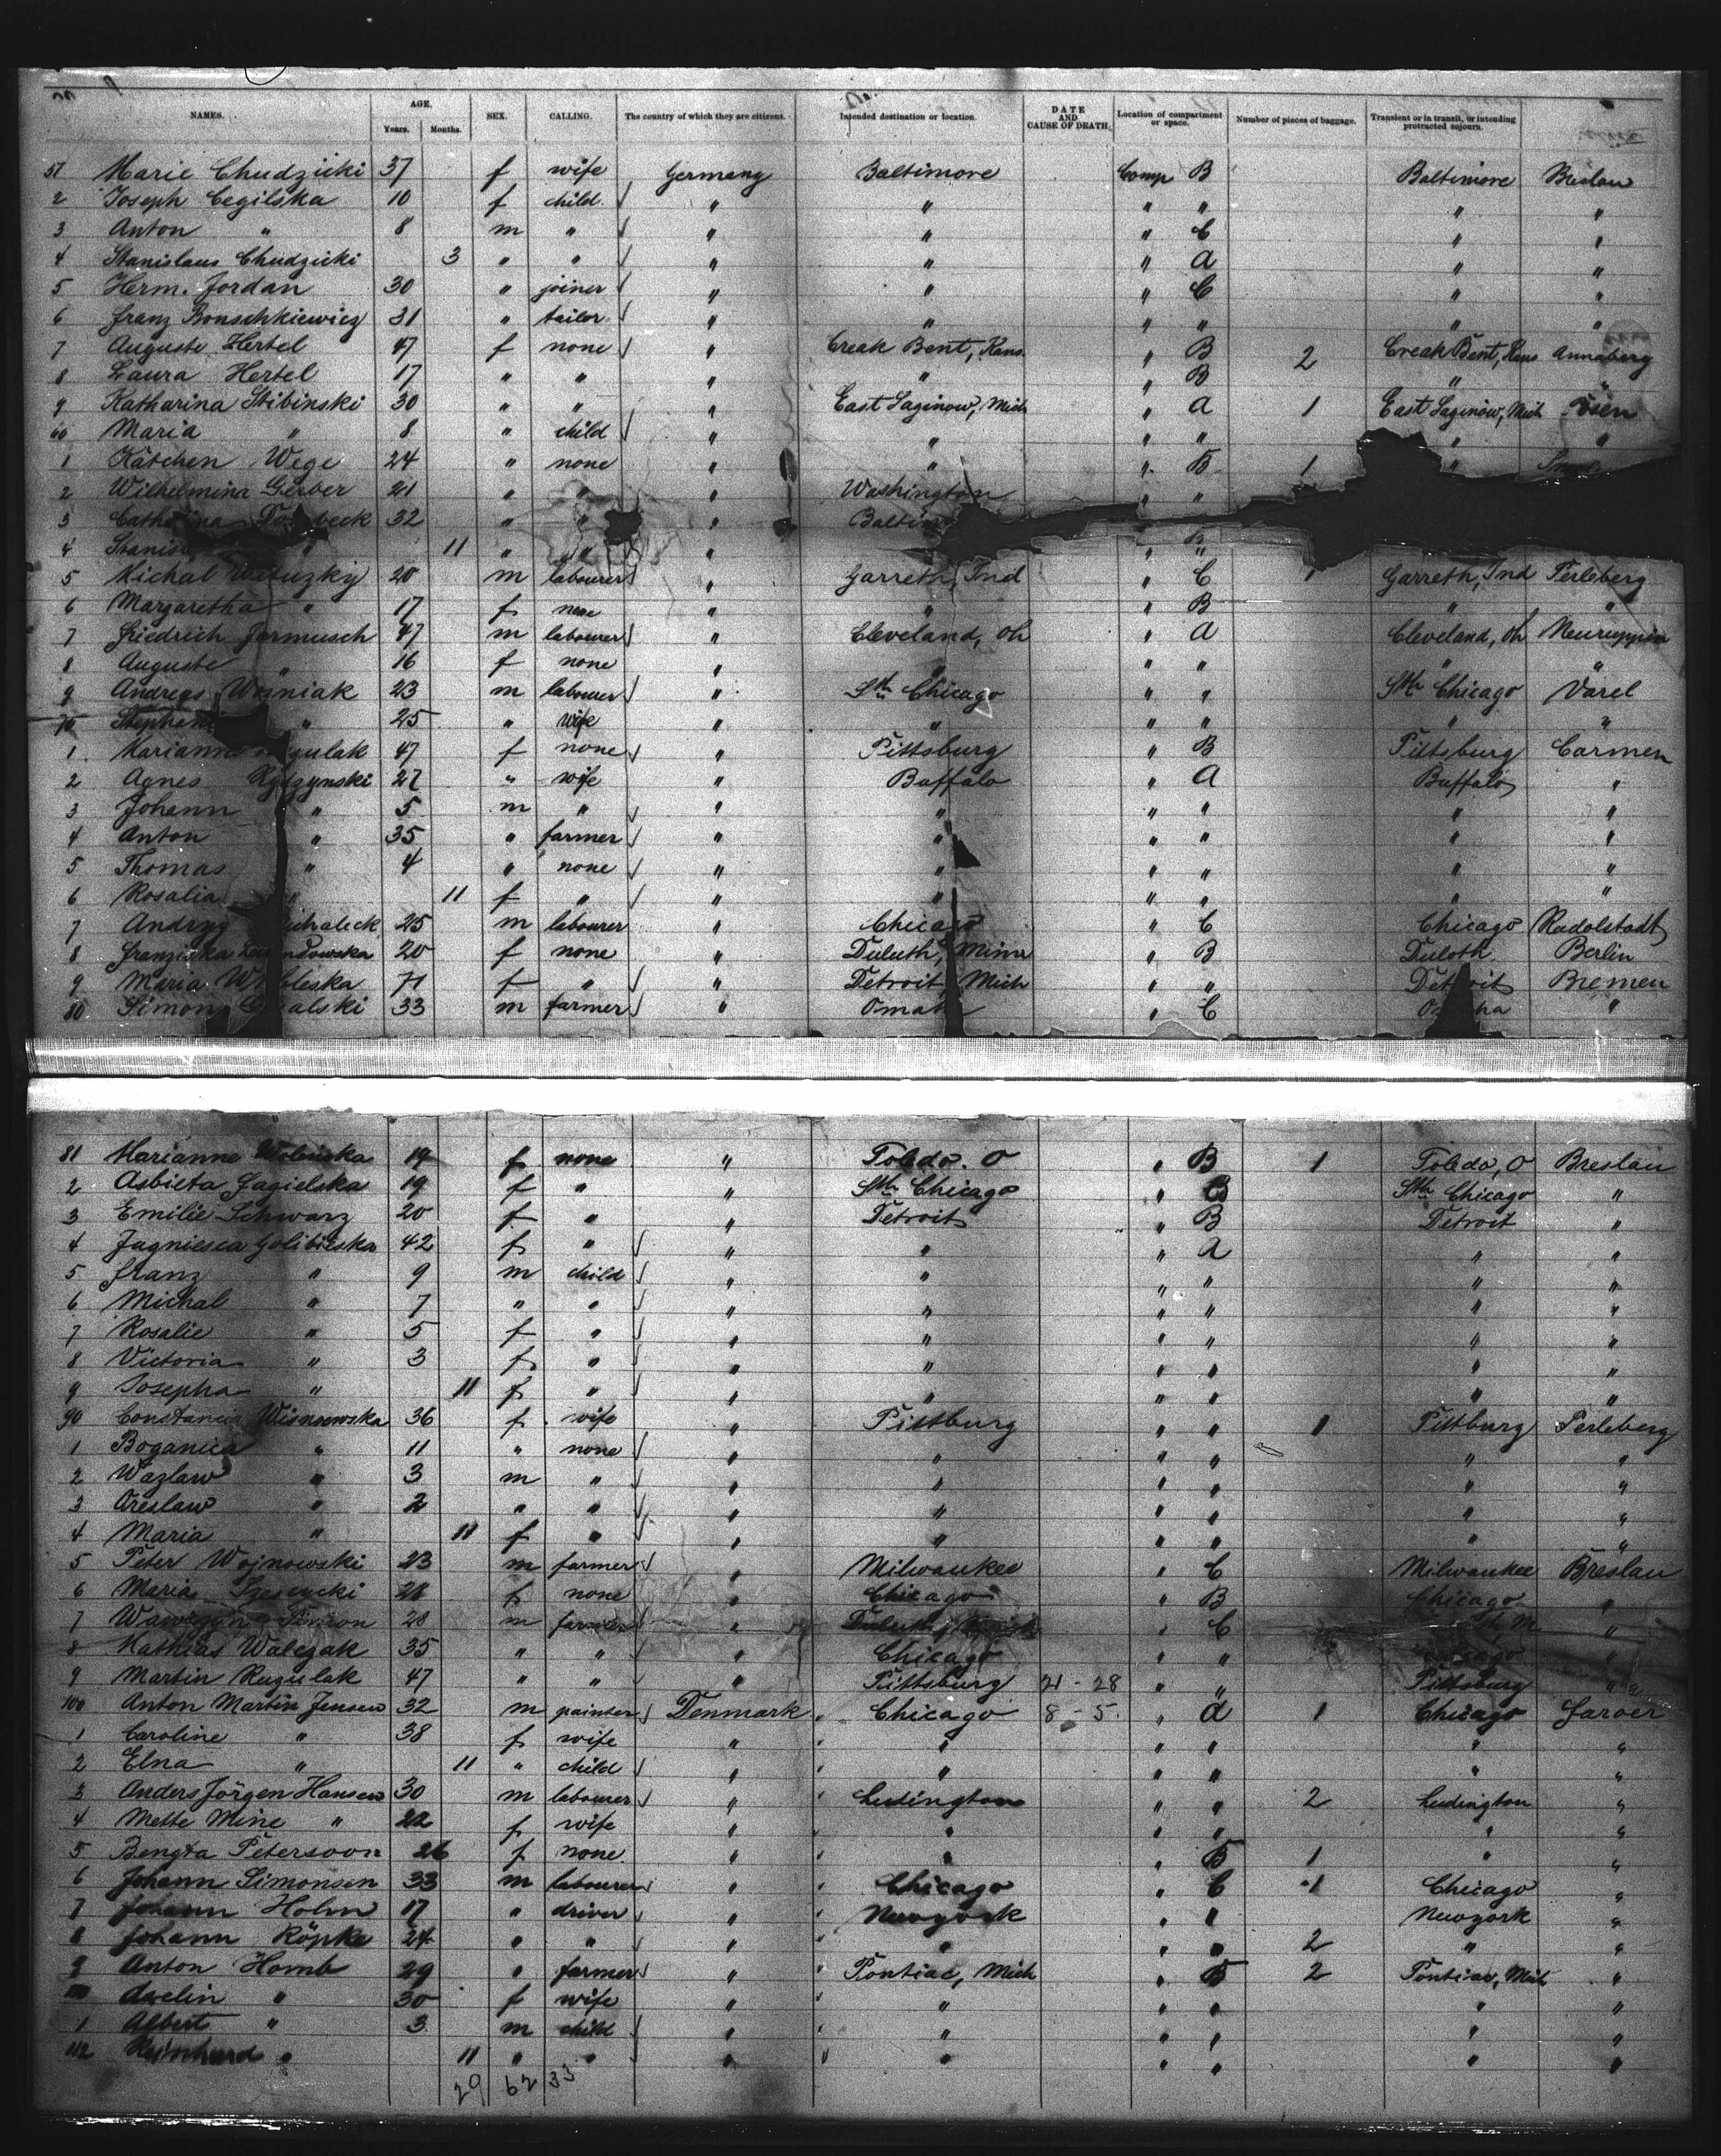 NAMES. AGE. Years. Months. SEX. CALLING. The country of which they are citizens. Intended destination or location. DATE AND CAUSE OF DEATH. Location of compartment or space. Number of pieces of baggage. Transient or in transit, or intending protracted sojourn.
51 Marie Chudzicki 37 f wife Germany Baltimore Comp B Baltimore Breslau
2 Joseph Cegilska 10 f child " " " " " "
3 Anton " 8 m " " " " C " "
4 Stanislaus Chudzicki 3 " " " " " A " "
5 Herm. Jordan 30 " joiner " " " C " "
6 Franz Bonschkiewicz 31 " tailor " " " " " "
7 Auguste Hertel 47 f none " Creak Bent, Kans. " B 2 Creak Bent, Kans Annaberg
8 Laura Hertel 17 " " " " " B " "
9 Katharina Stibinski 30 " " " East Saginow, Mich " A 1 East Saginow, Mich
60 Maria " 8 " child " " " " " "
1 Kätchen Wege 24 " none " " " B 1 "
2 Wilhelmina Gerber 21 " " " Washington " "
3 32 " " "
4 " 11 " " " " "
5 Michal 20 m labourer " Garreth, Ind " C Garreth, Ind Perleberg
6 Margaretha " 17 f none " " " B " "
7 Friedrich Jarmusch 47 m labourer " Cleveland, Oh " A Cleveland, Oh Neuruppin
8 Auguste " 16 f none " " " " " "
9 Andreas Wosniak 23 m labourer " Sth Chicago " " Sth Chicago Varel
70 " 25 " wife " " " " " "
1 Marianne 47 f none " Pittsburg " B Pittsburg Carmen
2 Agnes Rydzynski 27 " wife " Buffalo " A Buffalo "
3 Johann " 5 m " " " " " " "
4 Anton " 35 " farmer " " " " " "
5 Thomas " 4 " none " " " " " "
6 Rosalia " 11 f " " " " " " "
7 25 m labourer " Chicago " C Chicago Rudolstadt
8 Franziska 20 f none " Duluth, Minn " B Duloth Berlin
9 Maria 71 f " " Detroit Mich " " Detroit Bremen
80 Simon 33 m farmer " Omaha " C Omaha "
81 Marianne 19 f none " Toledo. O " B 1 Toledo, O Breslau
2 Asbieta Jagielska 19 f " " Sth Chicago " B Sth Chicago "
3 Emilie Schwarz 20 f " " Detroit " B Detroit "
4 Jagniesca Golibieska 42 f " " " " A " "
5 Franz " 9 m child " " " " " "
6 Michal " 7 " " " " " " " "
7 Rosalie " 5 f " " " " " " "
8 Victoria " 3 f " " " " " " "
9 Josepha " 11 f " " " " " " "
90 Constancia Wisnoewska 36 f wife " Pittburg " " 1 Pittburg Perleberg
1 Boganica " 11 " none " " " " " "
2 Wazlaw " 3 m " " " " " " "
3 Oreslaw " 2 " " " " " " " "
4 Maria " 11 f " " " " " " "
5 Peter Wojnowski 23 m farmer " Milwaukee " C Milwaukee Breslau
6 Maria 28 f none " Chicago " B Chicago "
7 28 m farmer " Duluth, " C "
8 Mathias Walczak 35 " " " Chicago " " Chicago "
9 Martin Rugulak 47 " " " Pittsburg 21 - 28 " " Pittsburg "
100 Anton Martin Jensen 32 m painter Denmark " Chicago 8 - 5. " A 1 Chicago Faroer
1 Caroline " 38 f wife " " " " " " "
2 Elna " 11 " child " " " " " " "
3 Anders Jörgen Hansen 30 m labourer " " Ludington " " 2 Ludington "
4 Mette Mine " 22 f wife " " " " " " "
5 Bengta Petersoon 26 f none " " " B 1 " "
6 Johann Simonsen 33 m labourer " " Chicago " C 1 Chicago "
7 Johann Holm 17 " driver " " Newyork " " Newyork "
8 Johann Röpke 24 " " " " " " " 2 " "
9 Anton Homb 29 " farmer " " Pontiac, Mich " B 2 Pontiac, Mich "
110 " 30 f wife " " " " " " "
1 Albert " 3 m child " " " " " " "
112 " 11 " " " " " " " " "
29 62 33